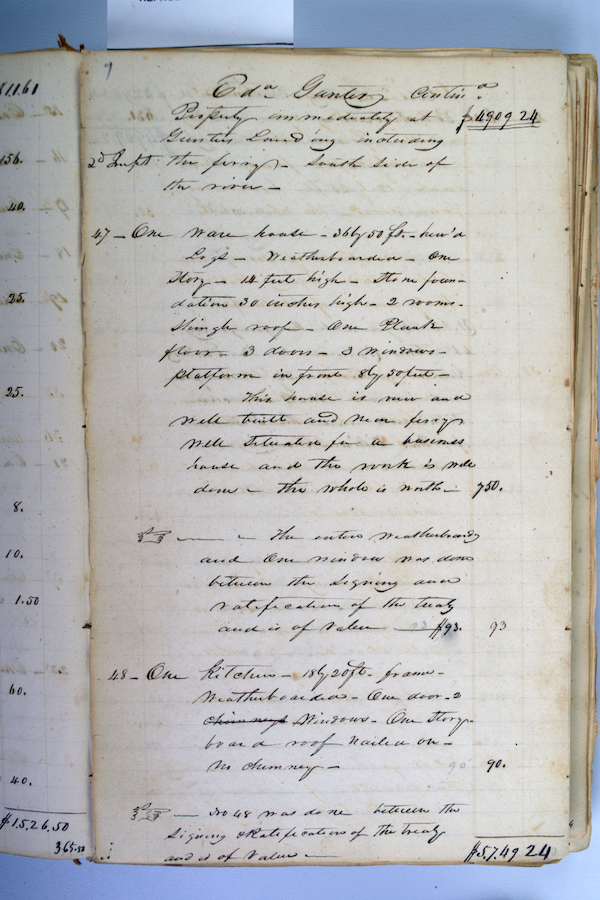 $11.61
156.
40.
25.
25.
8.
10.
1.50
60.
40.
$1526.50
365.50
9
Edw Gunter Contin
Property immediately at $4909 24
Gunters Landing including
2d Impt. the ferry - South Side of
the river -
47 - One Ware house - 36 by 50 ft. - hew'd
Logs - Weatherboarded - One
Story - 14 feet high - Stone foun-
dation 30 inches high - 2 rooms -
Shingle roof - One Plank
floor - 3 doors - 3 Windows -
Platform in front 8 by 50 feet -
This house is new and
well built and near ferry
well Situated for a business
house and the work is well
done - the whole is worth - 750.
- The entire Weatherboardg
and One window was done
between the Signing and
ratification of the treaty
and is of value $93. 93
48 - One Kitchen - 18 by 20 ft. frame -
Weatherboarded - One door - 2
chimneys Windows - One Story -
board roof nailed on -
no chimney - 90 90.
- No 48 was done between the
Signing & Ratification of the treaty
and is of Value -
$5749 24